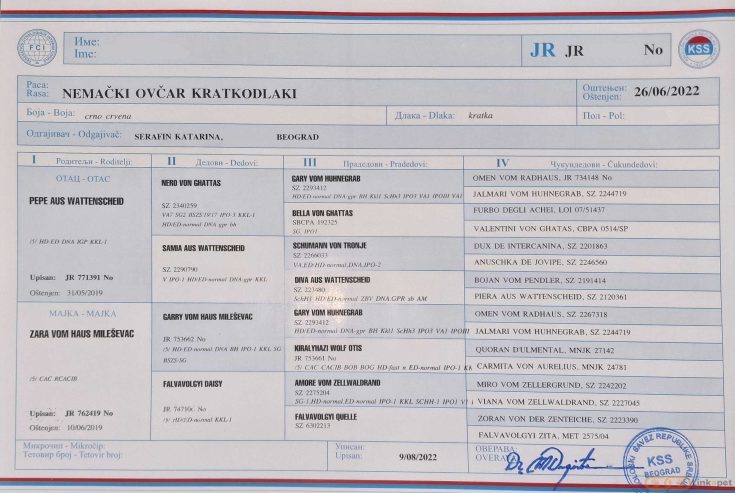 FCI
Име:
Ime:
JR JR No
KSS
Раса:
Rasa: NEMAČKI OVČAR KRATKODLAKI
Оштењен:
Oštenjen: 26/06/2022
Боја - Boja: crno crvena
Длака - Dlaka: kratka
Пол - Pol:
Одгајивач- Odgajivač: SERAFIN KATARINA, BEOGRAD
I Родитељи - Roditelji:
II Дедови - Dedovi:
III Прадедови - Pradedovi:
IV Чукундедови - Čukundedovi:
ОТАЦ - OTAC
PEPE AUS WATTENSCHEID
/5/ HD-ED DNA IGP KKL-1
Upisan: JR 771391 No
Oštenjen: 31/05/2019
МАЈКА - MAJKA
ZARA VOM HAUS MILEŠEVAC
/5/ CAC RCACIB
Upisan: JR 762419 No
Oštenjen: 10/06/2019
NERO VON GHATTAS
SZ 2340259
VA7 SG2 BSZS/19/17 IPO-3 KKL-1
HD/ED-normal DNA-gpr bh
SAMBA AUS WATTENSCHEID
SZ 2290790
V IPO-1 HD/ED-normal DNA-gpr KKL
GARRY VOM HAUS MILEŠEVAC
JR 753662 No
/5/ HD/ED-normal DNA BH IPO-1 KKL SG
BSZS-SG
FALVAVOLGYI DAISY
/5/ HD/ED-normal KKL-1
GARY VOM HUHNEGRAB
SZ 2293412
HD/ED-normal DNA-gpr BH Kkl1 SchH3 IPO3 VA1 IPOIII VA1
BELLA VON GHATTAS
SBCPA 192325
SG, IPO1
SCHUMANN VON TRONJE
SZ 2266033
VA,ED-HD-normal,DNA,IPO-2
DIVA AUS WATTENSCHEID
SZ 223480
SchH3 HD/ED-normal ZBV DNA.GPR sb AM
GARY VOM HUHNEGRAB
SZ 2293412
HD/ED-normal DNA-gpr BH Kkl1 SchH3 IPO3 VA1 IPOIII
KIRALYHAZI WOLF OTIS
JR 753661 No
/5/ CAC CACIB BOB BOG HD-fast n ED-normal IPO-1 KK
AMORE VOM ZELLWALDRAND
SZ 2275204
SG-1,HD-normal,ED-normal IPO-1 KKL SCHH-1 IPO1 V1
FALVAVOLGYI QUELLE
SZ 6302213
OMEN VOM RADHAUS, JR 734148 No
JALMARI VOM HUHNEGRAB, SZ 2244719
FURBO DEGLI ACHEI, LOI 07/51437
VALENTINI VON GHATAS, CBPA 0514/SP
DUX DE INTERCANINA, SZ 2201863
ANUSCHKA DE JOVIPE, SZ 2246560
BOJAN VOM PENDLER, SZ 2191414
PIERA AUS WATTENSCHEID, SZ 2120361
OMEN VOM RADHAUS, SZ 2267318
JALMARI VOM HUHNEGRAB, SZ 2244719
QUORAN D'ULMENTAL, MNJK 27142
CARMITA VON AURELIUS, MNJK 24781
MIRO VOM ZELLERGRUND, SZ 2242202
VIANA VOM ZELLWALDRAND, SZ 2227045
ZORAN VON DER ZENTEICHE, SZ 2223390
FALVAVOLGYI ZITA, MET 2575/04
Микрочип - Mikročip:
Тетовир број - Tetovir broj:
Уписан:
Upisan: 9/08/2022
ОВЕРАВА
OVERAVA
KSS
BEOGRAD